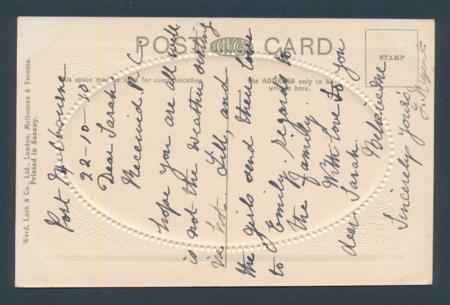 POST CARD
This space may be used for communication
The ADDRESS only to be
written here.
STAMP
Ward, Lock & Co., Ltd., London, Melbourne & Toronto.
Printed in Saxony.
Port Melbourne
22-10-10
Dear Sarah
Received P.C
hope you are all well
is not the weather
hot. Lill, and
the girls send their love
to Emily, regards to
the family
With love to you
dear Sarah
Sincerely Yours